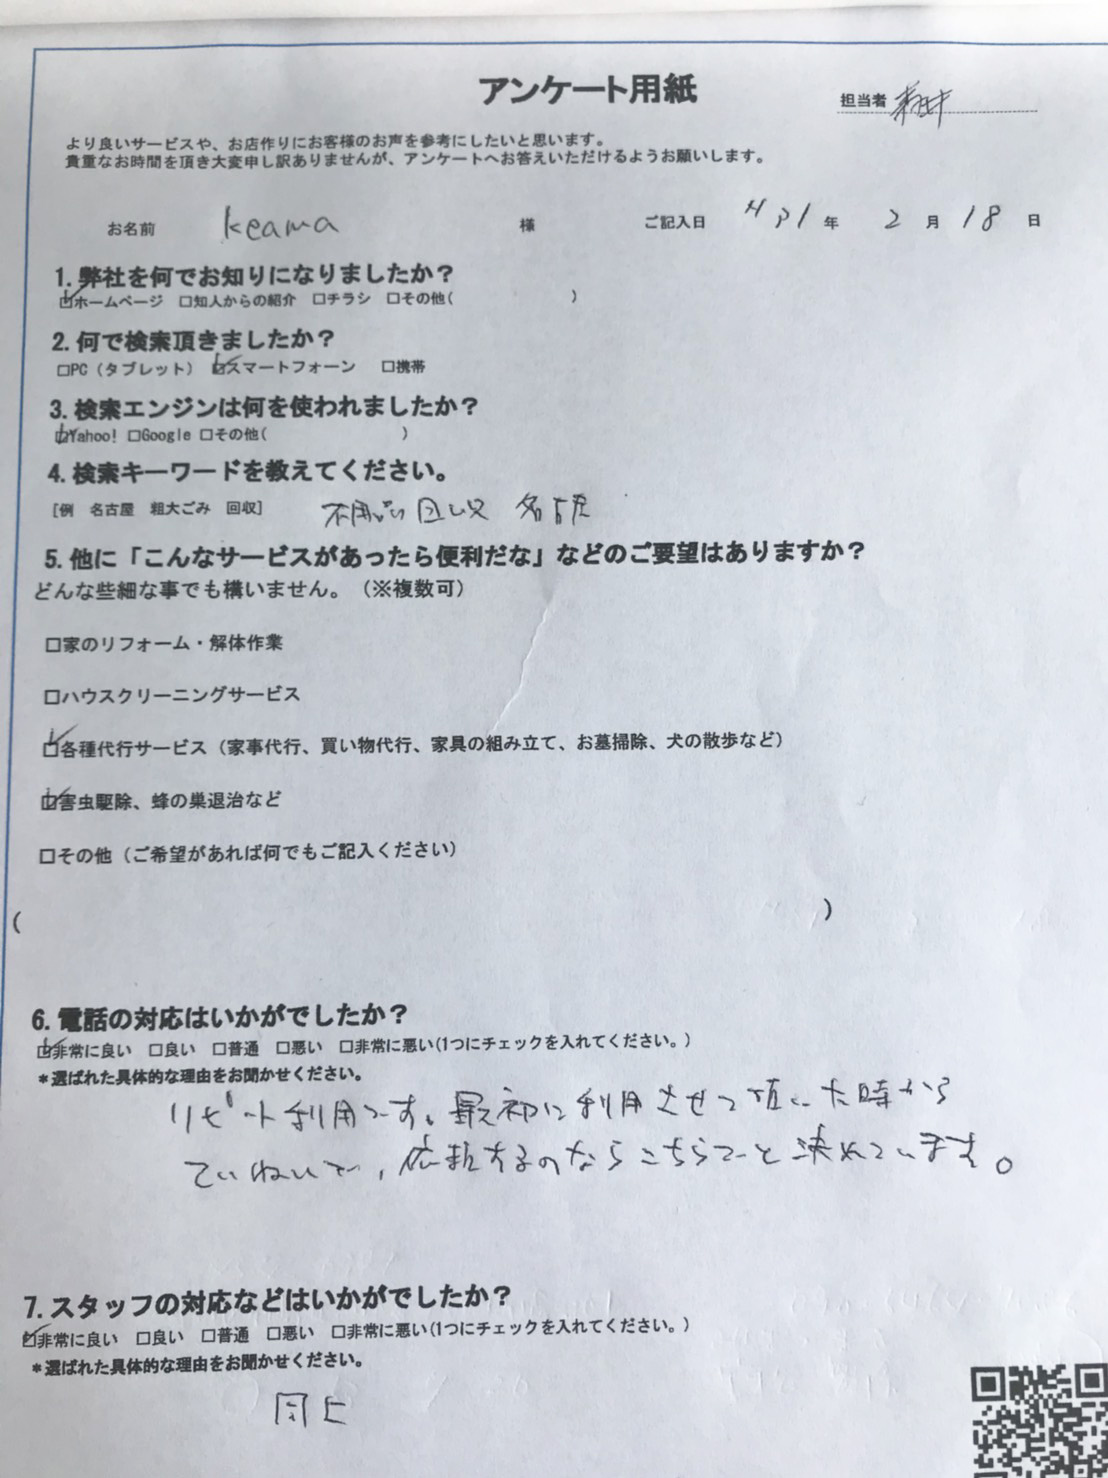 アンケート用紙
担当者
より良いサービスや、お店作りにお客様のお声を参考にしたいと思います。
貴重なお時間を頂き大変申し訳ありませんが、アンケートへお答えいただけるようお願いします。
お名前 keama 様 ご記入日 H31年 2月18日
1. 弊社を何でお知りになりましたか？
☑ホームページ □知人からの紹介 □チラシ □その他( )
2. 何で検索頂きましたか？
□PC（タブレット） ☑スマートフォーン □携帯
3. 検索エンジンは何を使われましたか？
☑Yahoo! □Google □その他( )
4. 検索キーワードを教えてください。
[例 名古屋 粗大ごみ 回収] 不用品回収 名古屋
5. 他に「こんなサービスがあったら便利だな」などのご要望はありますか？
どんな些細な事でも構いません。（※複数可）
□家のリフォーム・解体作業
□ハウスクリーニングサービス
☑各種代行サービス（家事代行、買い物代行、家具の組み立て、お墓掃除、犬の散歩など）
☑害虫駆除、蜂の巣退治など
□その他（ご希望があれば何でもご記入ください）
( )
6. 電話の対応はいかがでしたか？
☑非常に良い □良い □普通 □悪い □非常に悪い(1つにチェックを入れてください。)
＊選ばれた具体的な理由をお聞かせください。
リピート利用です。最初に利用させて頂いた時から
ていねいで、依頼するのならこちらでーと決めています。
7. スタッフの対応などはいかがでしたか？
☑非常に良い □良い □普通 □悪い □非常に悪い(1つにチェックを入れてください。)
＊選ばれた具体的な理由をお聞かせください。
同上